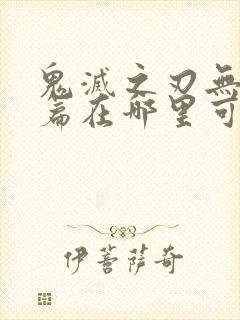 鬼滅之刃無
篇在哪里可
伊菩萨奇